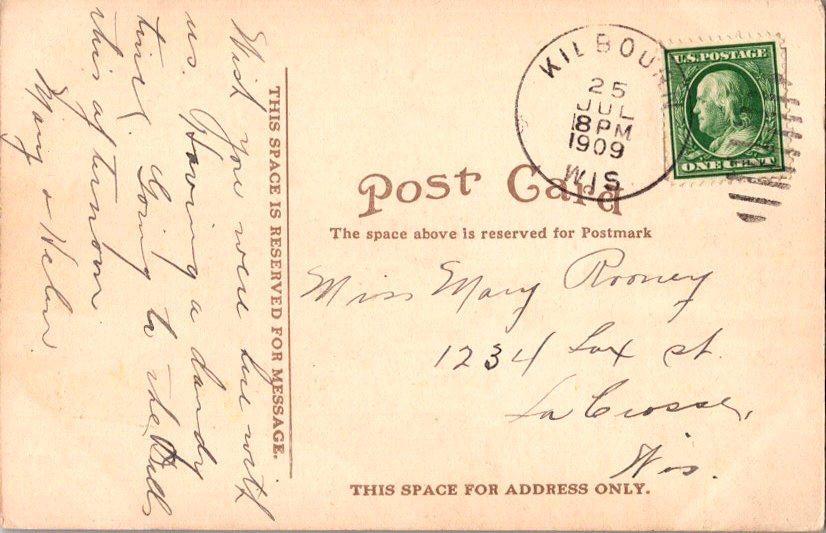 Wish you were here with
us. Having a dandy
time. Going to the Dells
this afternoon.
Mary & Helen.
THIS SPACE IS RESERVED FOR MESSAGE.
KILBOURN
25
JUL
8 PM
1909
WIS
U.S. POSTAGE
ONE CENT
Post Card
The space above is reserved for Postmark
Miss Mary Rooney
1234 St.
La Crosse,
Wis.
THIS SPACE FOR ADDRESS ONLY.